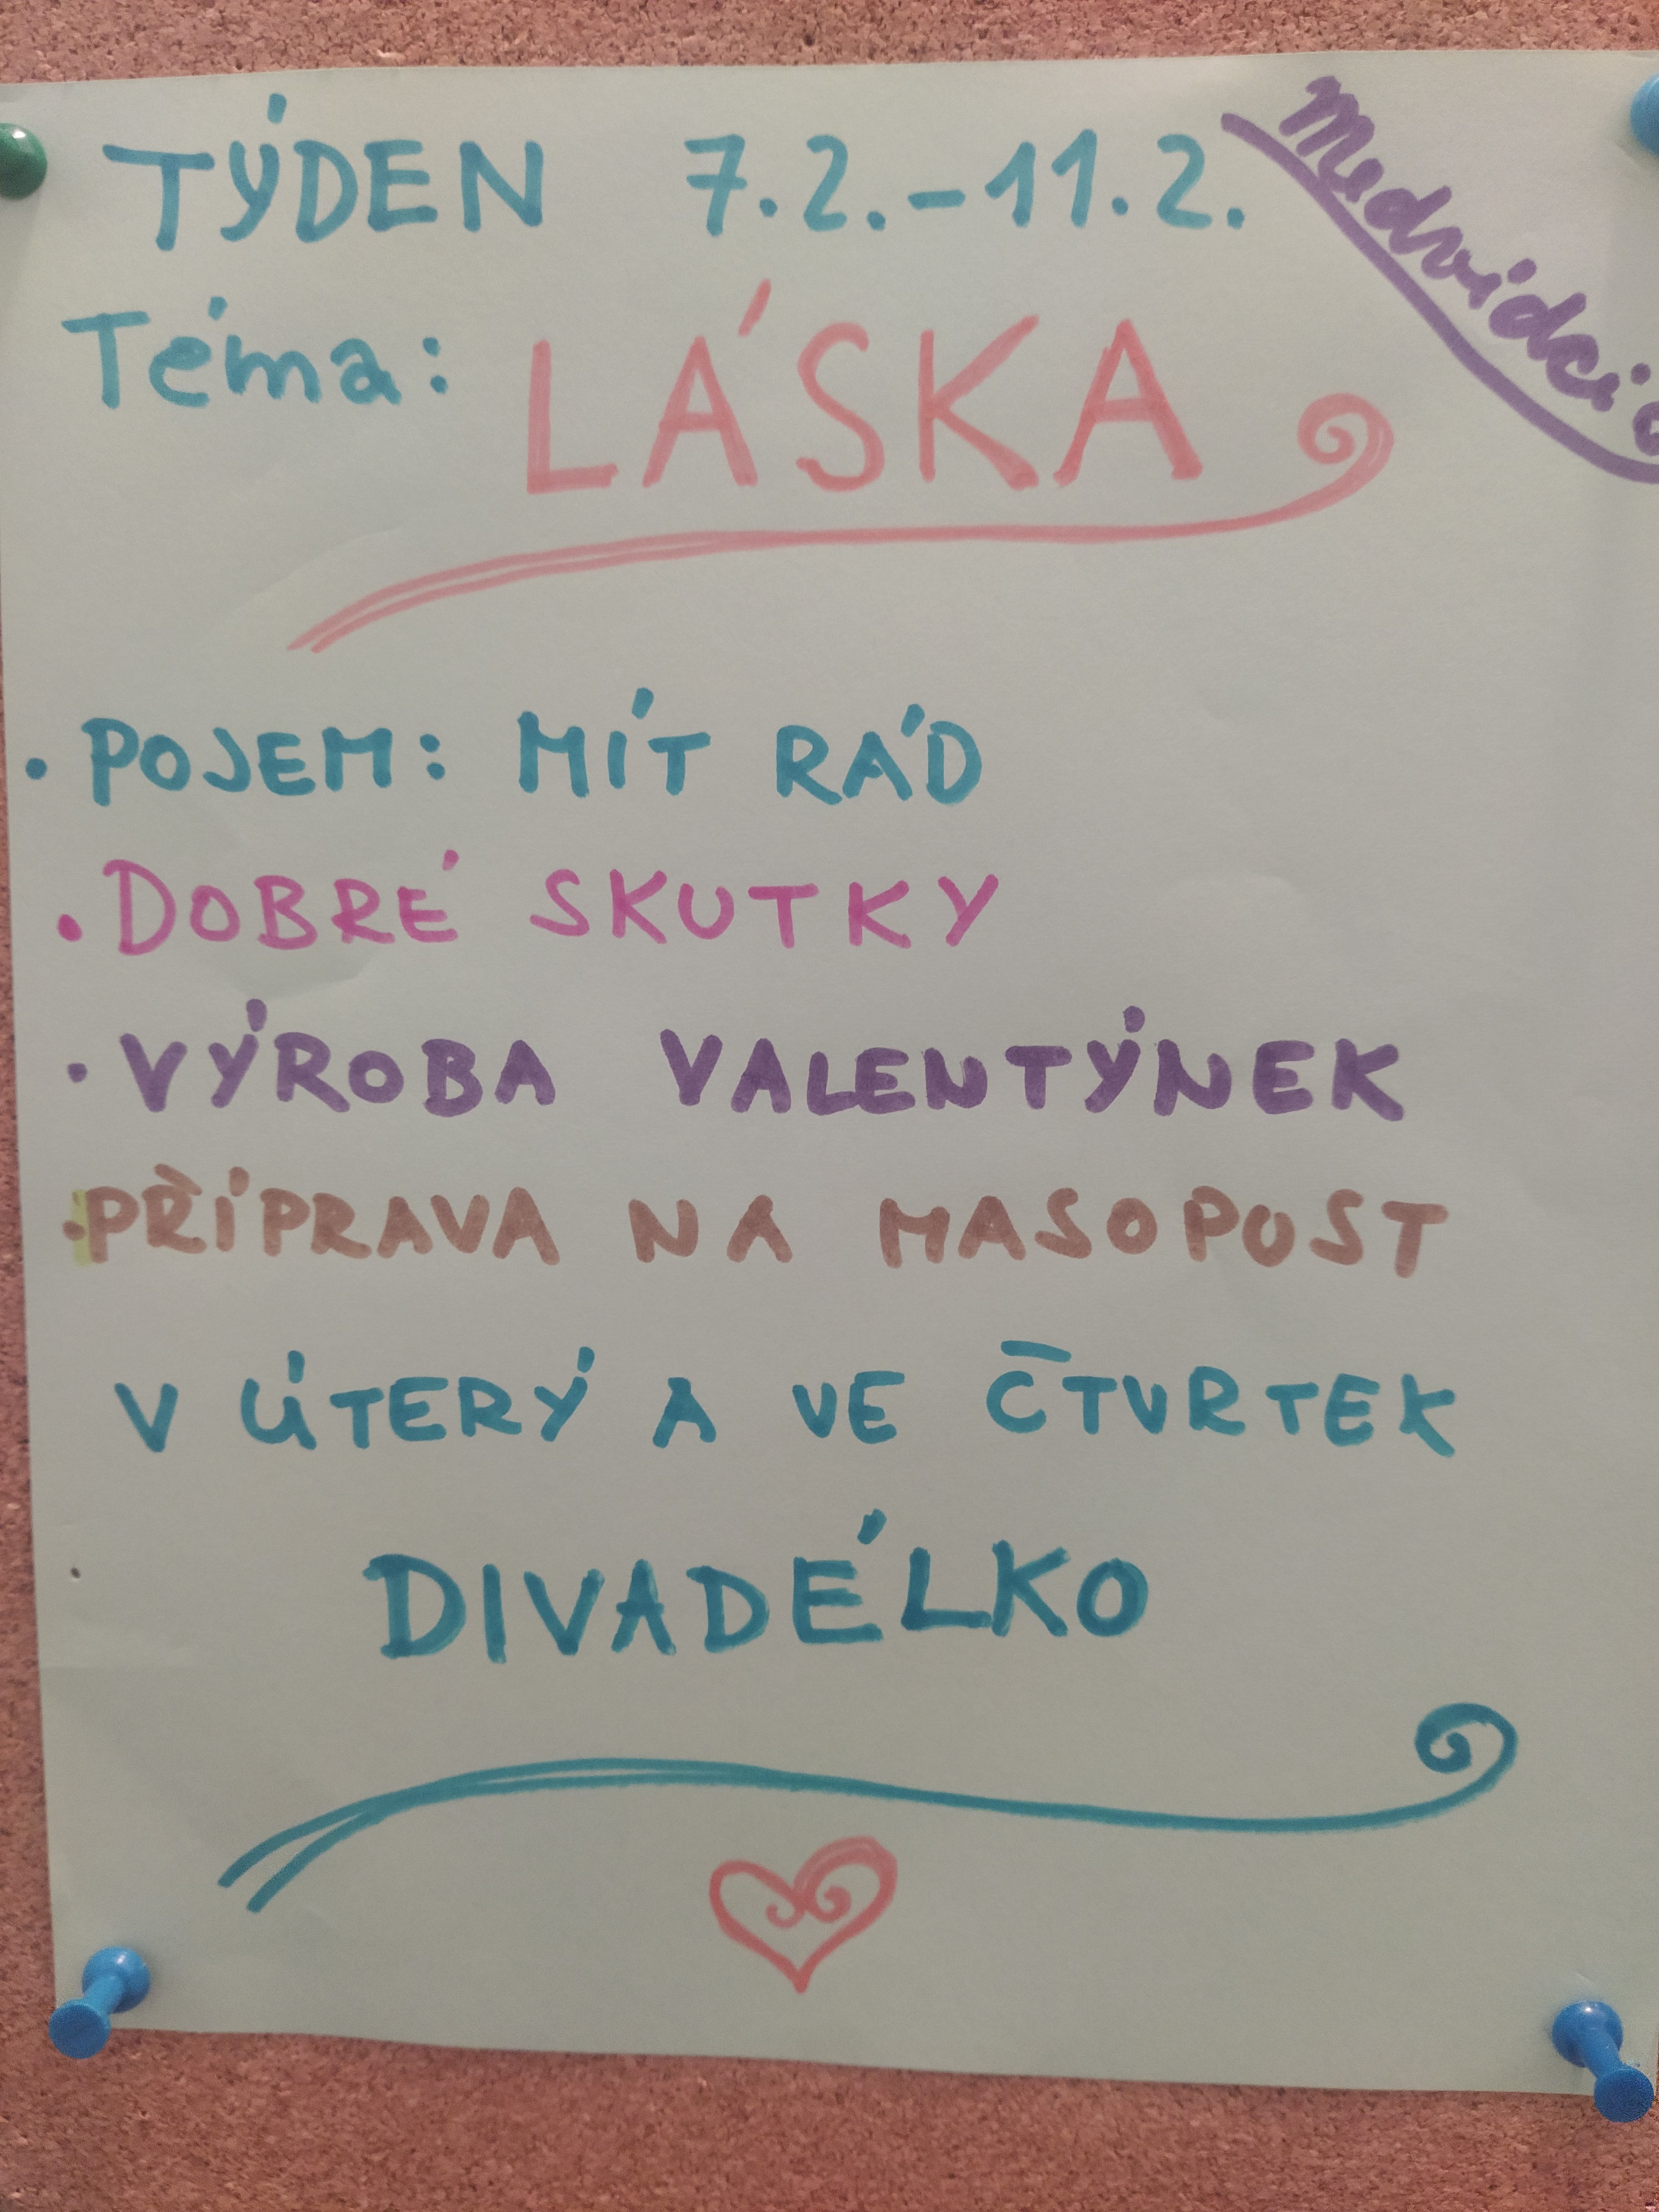 TÝDEN 7.2.-11.2.
Medvídci
Téma: LÁSKA
• POJEM: MÍT RÁD
• DOBRÉ SKUTKY
• VÝROBA VALENTÝNEK
• PŘÍPRAVA NA MASOPOST
V ÚTERÝ A VE ČTVRTEK
DIVADÉLKO